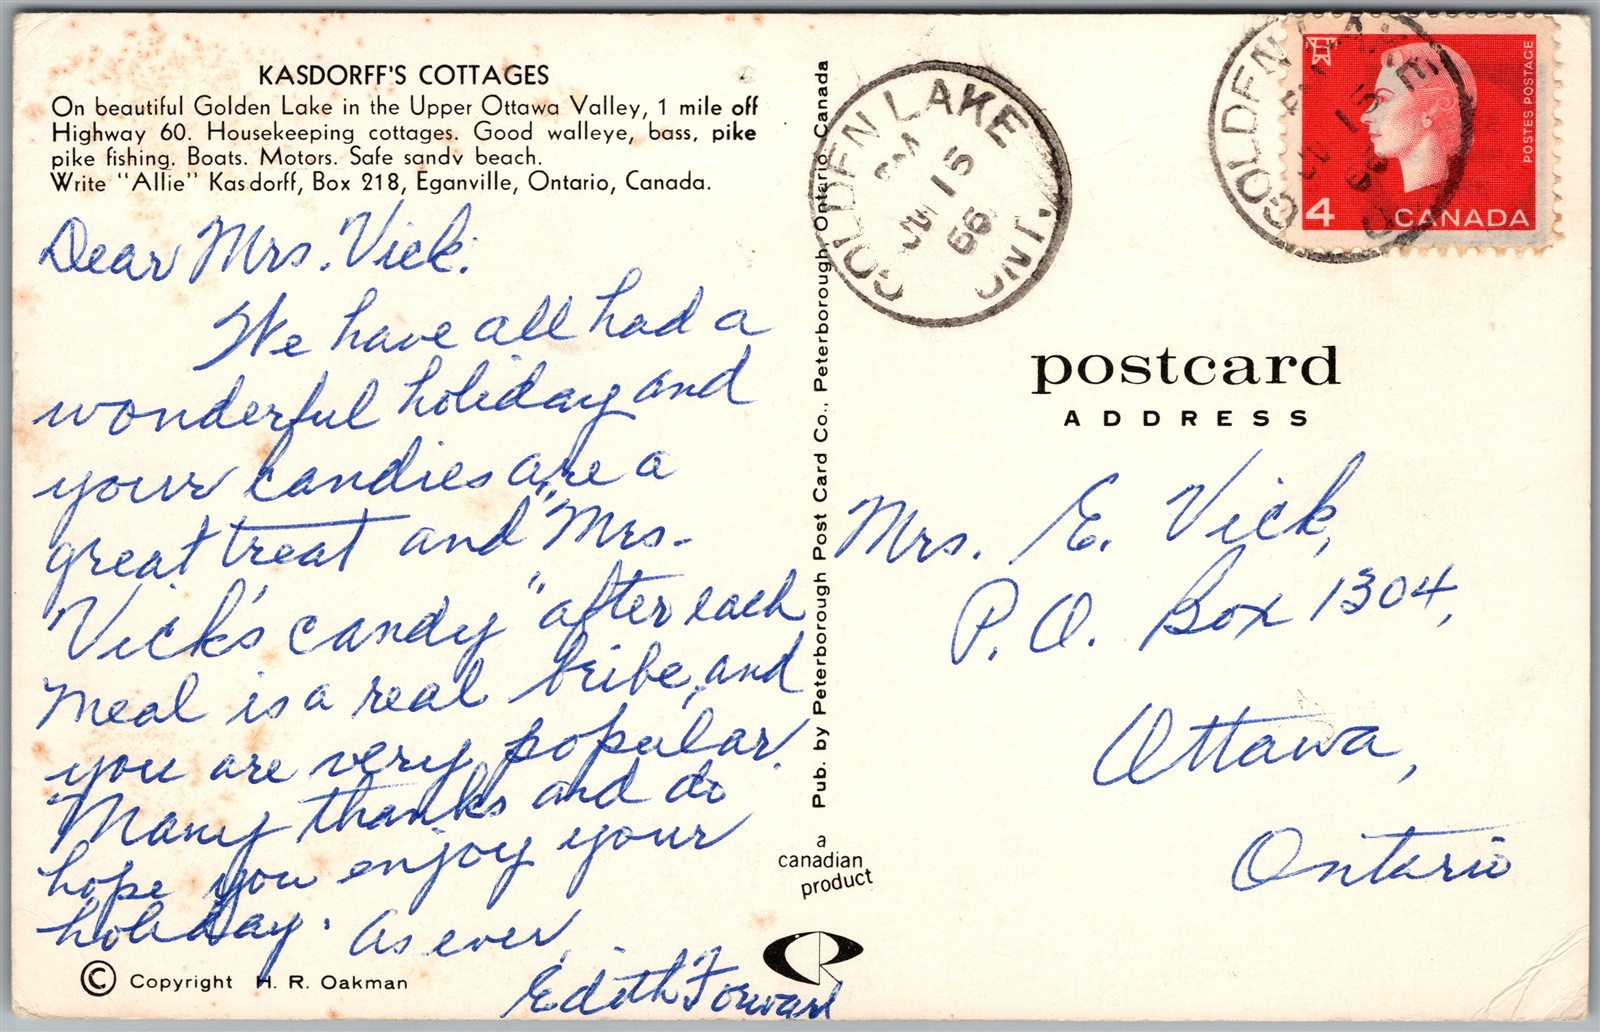 KASDORFF'S COTTAGES
On beautiful Golden Lake in the Upper Ottawa Valley, 1 mile off
Highway 60. Housekeeping cottages. Good walleye, bass, pike
pike fishing. Boats. Motors. Safe sandv beach.
Write "Allie" Kasdorff, Box 218, Eganville, Ontario, Canada.
Dear Mrs. Vick:
We have all had a
wonderful holiday and
your candies are a
great treat and "Mrs.
Vick's candy" after each
meal is a real bribe, and
you are very popular.
Many thanks and do
hope you enjoy your
holiday. As ever,
Edith Forward
© Copyright H. R. Oakman
Pub. by Peterborough Post Card Co., Peterborough, Ontario, Canada
a
canadian
product
GOLDEN LAKE
PM
15
66
ONT.
GOLDEN LAKE
POSTES POSTAGE
4 CANADA
postcard
ADDRESS
Mrs. E. Vick,
P. O. Box 1304,
Ottawa,
Ontario